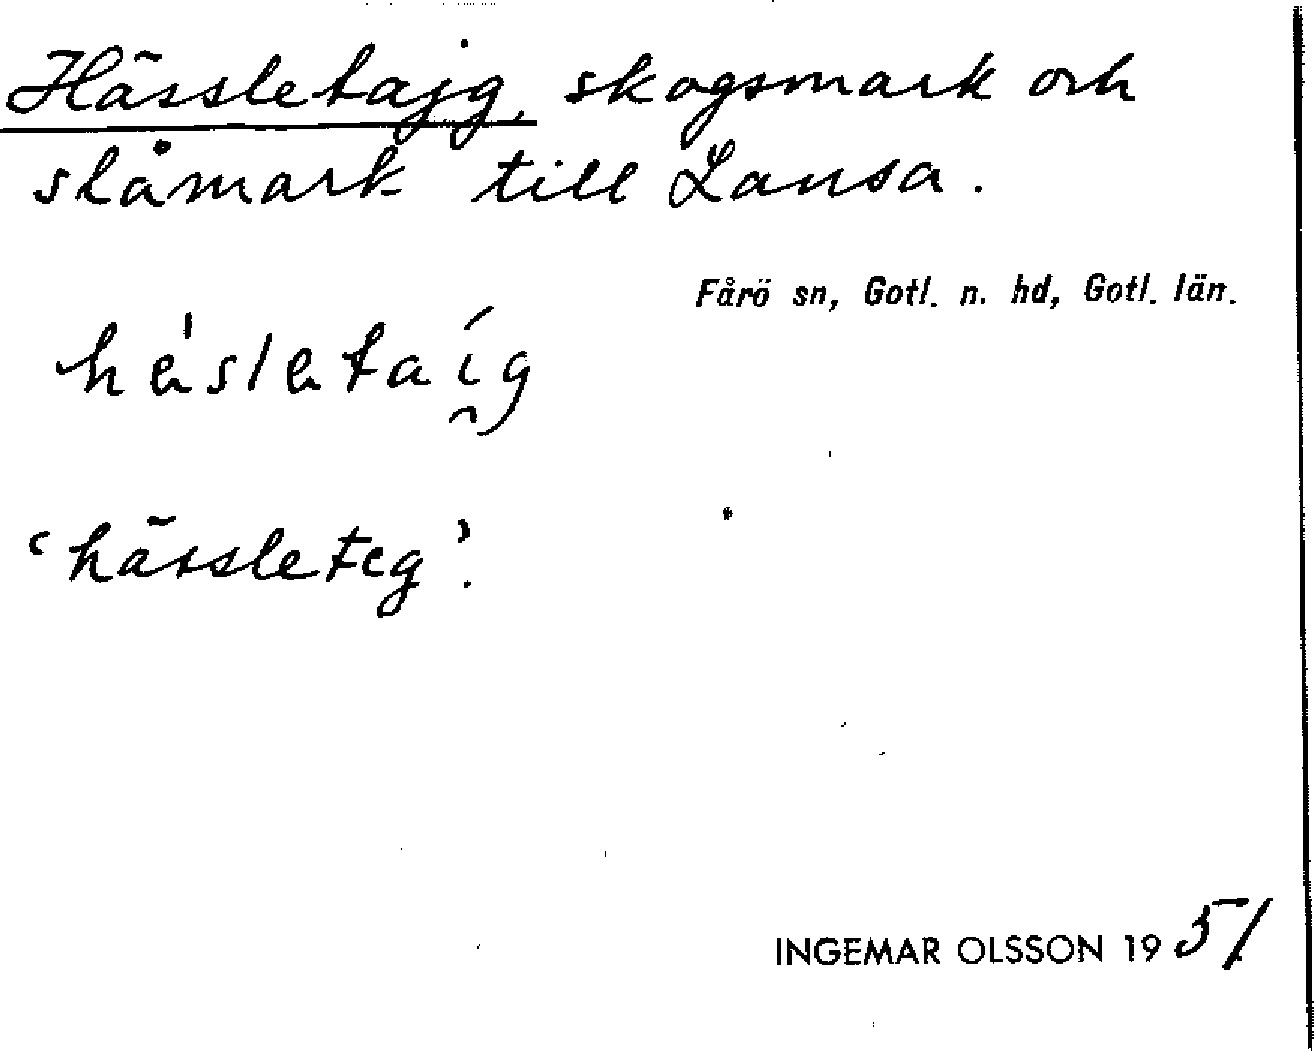 Hässletajg, skogsmark och
slåmark till Lansa.
Fårö sn, Gotl. n. hd, Gotl. län.
'hässleteg'.
INGEMAR OLSSON 1951